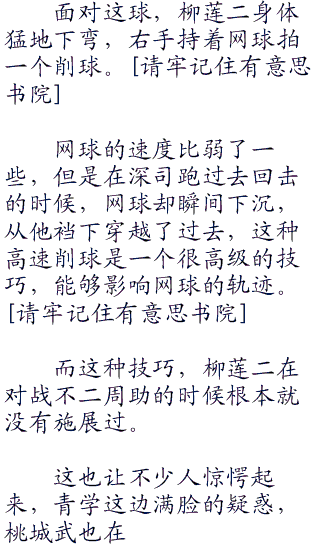 面对这球，柳莲二身体
猛地下弯，右手持着网球拍
一个削球。[请牢记住有意思
书院]
网球的速度比弱了一
些，但是在深司跑过去回击
的时候，网球却瞬间下沉，
从他裆下穿越了过去，这种
高速削球是一个很高级的技
巧，能够影响网球的轨迹。
[请牢记住有意思书院]
而这种技巧，柳莲二在
对战不二周助的时候根本就
没有施展过。
这也让不少人惊愕起
来，青学这边满脸的疑惑，
桃城武也在